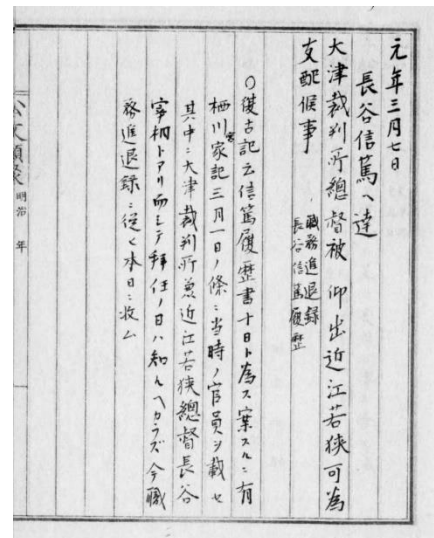 元年三月七日
長谷信篤ヘ達
大津裁判所總督被　仰出近江若狹可為
支配候事
職務進退録
長谷信篤履歴
〇復古記云信篤履歴書十日ト為ス案スルニ有
栖川宮家記三月一日ノ條ニ当時ノ官員ヲ載セ
其中ニ大津裁判所兼近江若狹總督長谷
宰相トアリ而ミテ拝任ノ日ハ知ルヘカラズ今職
務進退録ニ従ヒ本日ニ收ム
公文類聚
明治　年